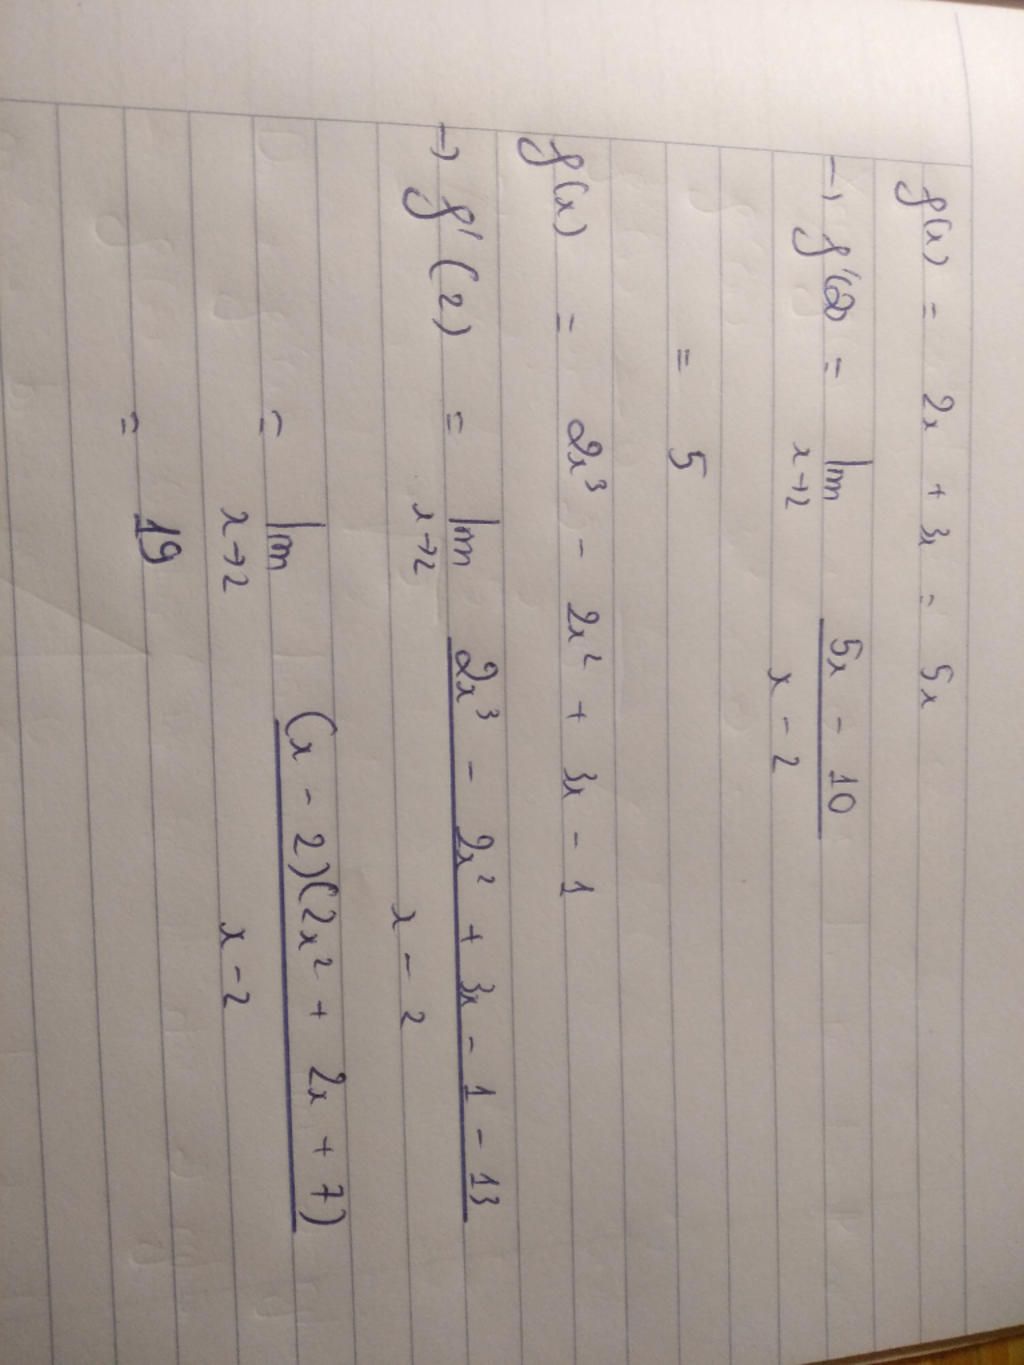 f(x) = 2x + 3x = 5x
→ f'(2) = lim 5x - 10
x→2 x - 2
= 5
f(x) = 2x³ - 2x² + 3x - 1
→ f'(2) = lim 2x³ - 2x² + 3x - 1 - 13
x→2 x - 2
= lim (x - 2)(2x² + 2x + 7)
x→2 x - 2
= 19